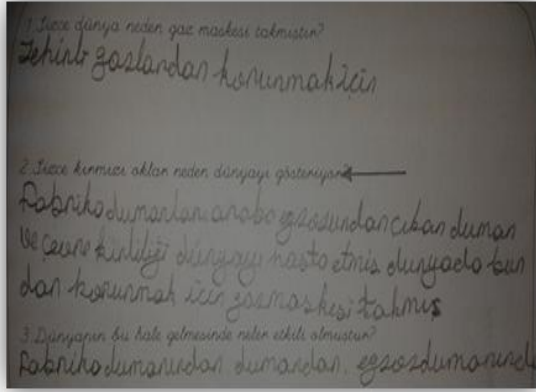 1. Sizce dünya neden gaz maskesi takmıştır?
Zehirli gazlardan korunmak için
2. Sizce kırmızı oklar neden dünyayı gösteriyor?
Fabrika dumanları araba egzosundan çıkan duman
ve çevre kirliliği dünyayı hasta etmiş dünyada bun
dan korunmak için gazmaskesi takmış
3. Dünyanın bu hale gelmesinde neler etkili olmuştur?
Fabrika dumanından dumandan, egzosdumanında